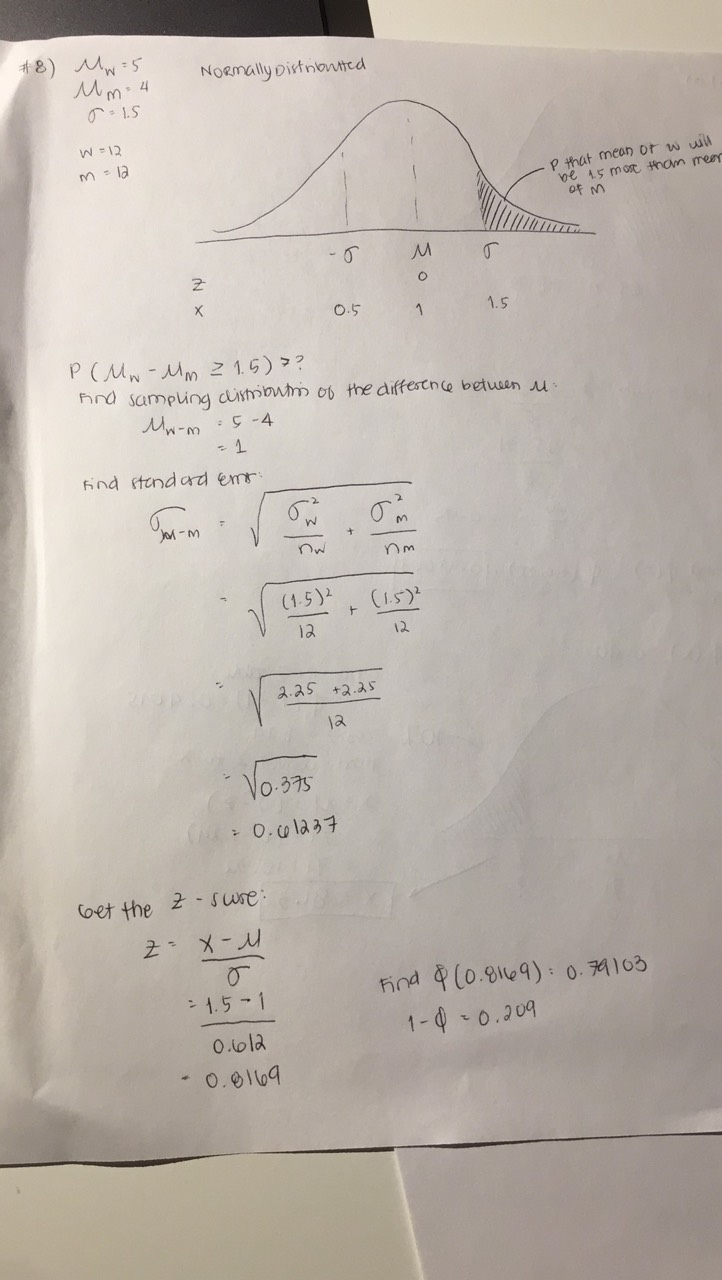 #8) μw = 5
Normally Distributed
μm = 4
σ = 1.5
w = 12
m = 12
P that mean of w will
be 1.5 more than mean
of M
-σ μ σ
z 0
x 0.5 1 1.5
P (μw - μm ≥ 1.5) = ?
Find sampling distribution of the difference between μ:
μw-m = 5 - 4
= 1
Find standard error:
σw-m = √(σ²w/nw + σ²m/nm)
= √((1.5)²/12 + (1.5)²/12)
= √((2.25 + 2.25)/12)
= √0.375
= 0.61237
Get the z - score:
z = (x - μ)/σ
= (1.5 - 1)/0.612
= 0.8169
Find Φ(0.8169) = 0.79103
1 - Φ = 0.209